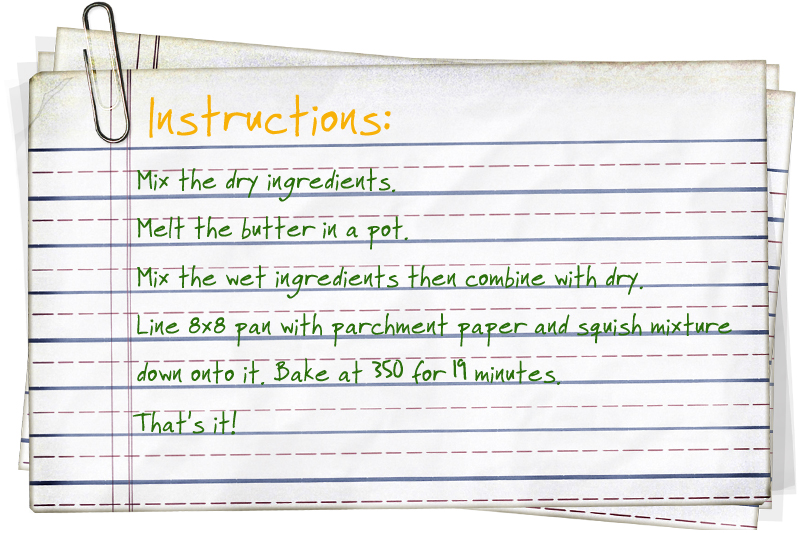 Instructions:
Mix the dry ingredients.
Melt the butter in a pot.
Mix the wet ingredients then combine with dry.
Line 8x8 pan with parchment paper and squish mixture
down onto it. Bake at 350 for 19 minutes.
That's it!